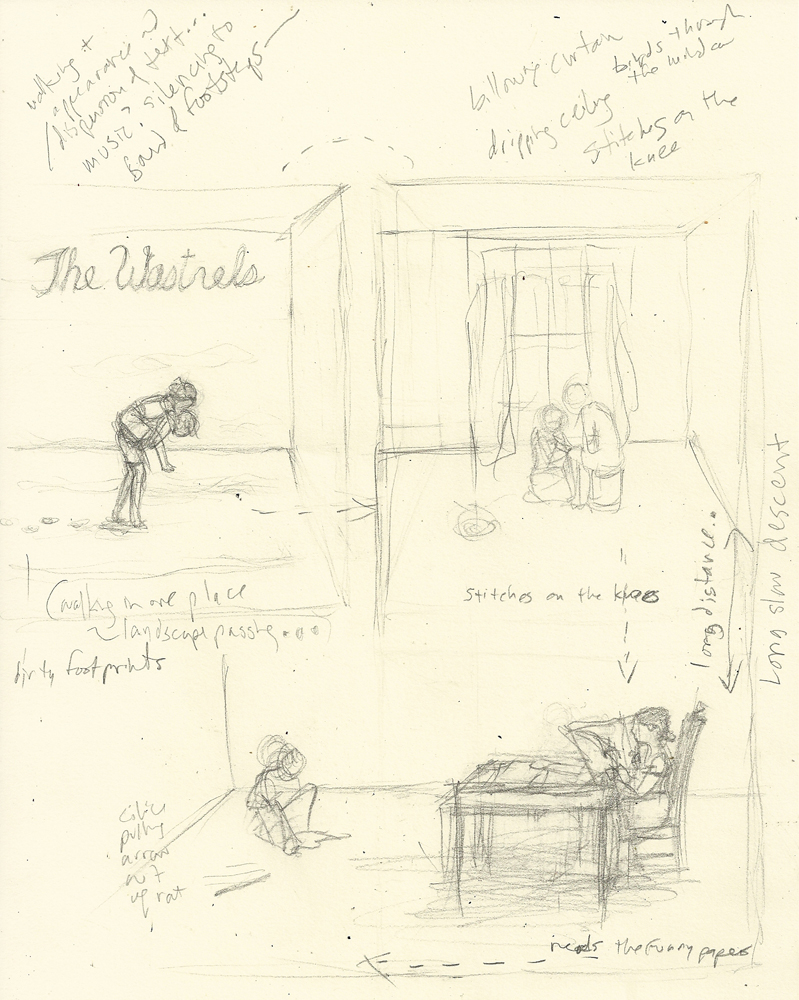 walking +
appearance
/dispersion of text...
music. silencing to
band of footsteps —
billowing curtain
birds through
the window
dripping ceiling
stitches on the
knee
The Wastrels
(walking in one place
~ landscape passing...
dirty footprints
stitches on the knees
long distance..
Long slow descent
pulling
arrow
out
of rat
reads the funny papers